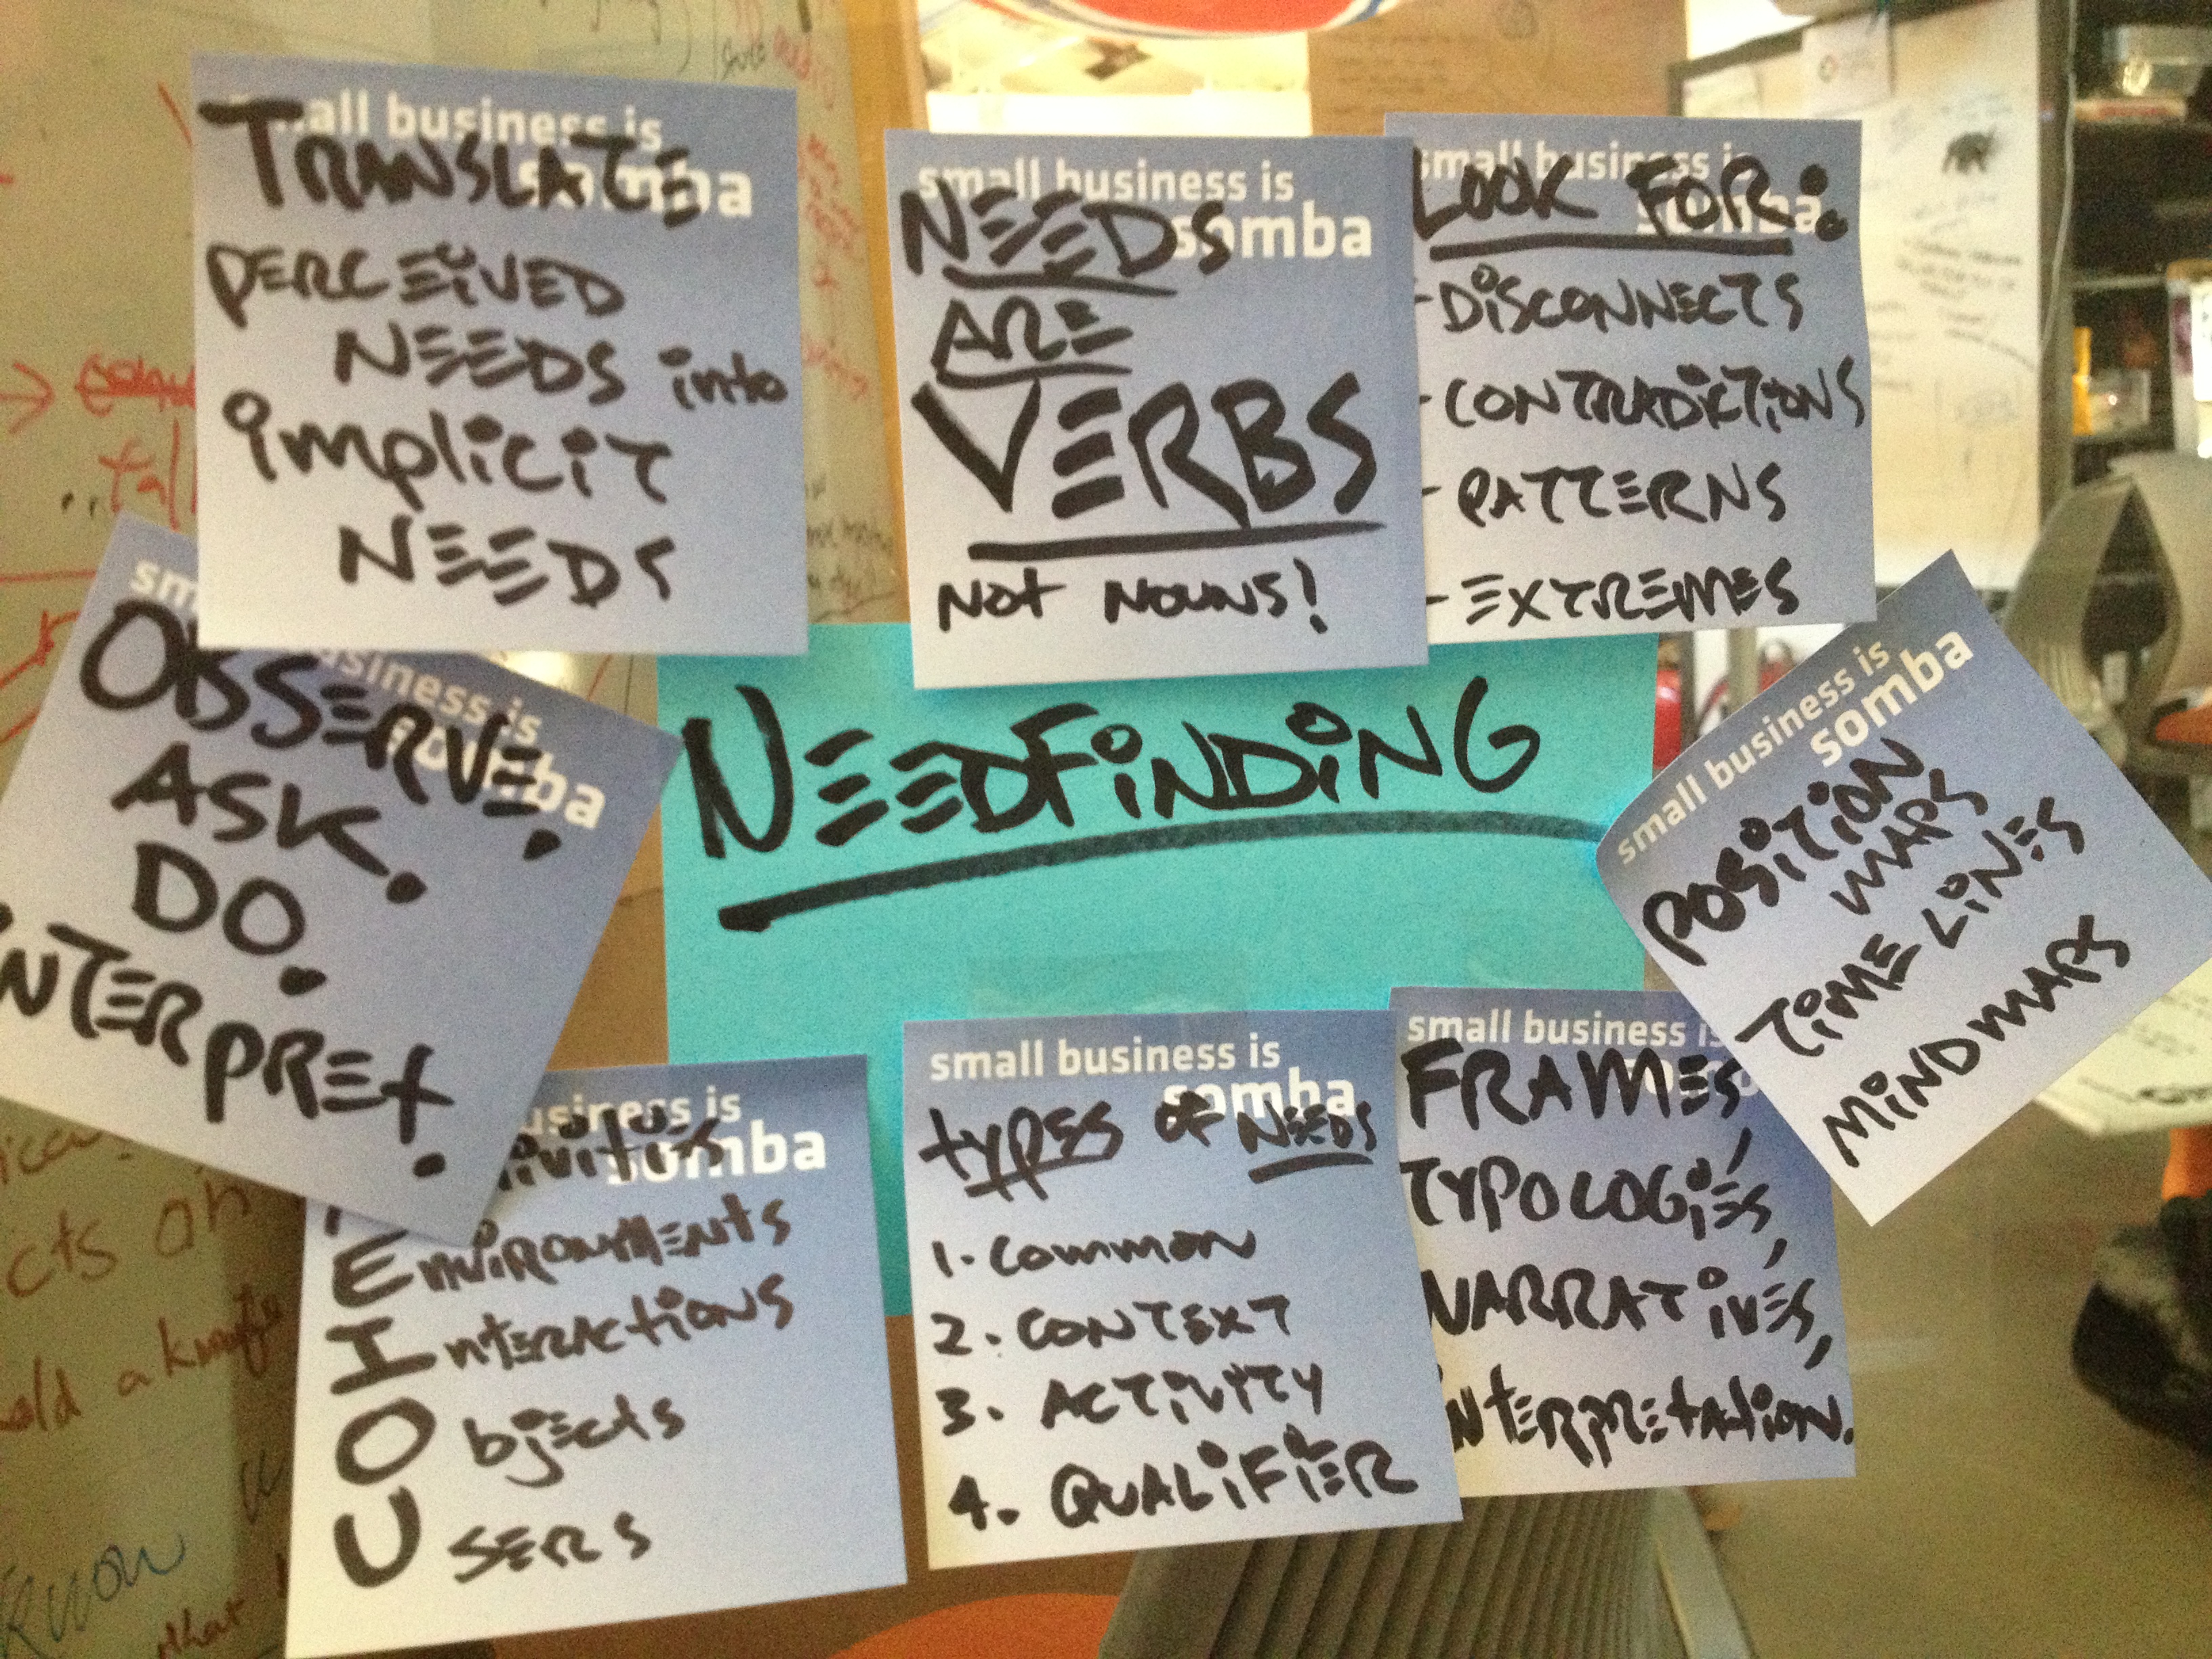 small business is
somba
TRANSLATE
PERCEIVED
NEEDS into
implicit
NEEDS
small business is
somba
NEEDS
ARE
VERBS
NOT NOUNS!
small business is
somba
LOOK FOR:
- DISCONNECTS
- CONTRADICTIONS
- PATTERNS
- EXTREMES
business is
somba
OBSERVE.
ASK.
DO.
INTERPRET.
NEEDFINDING
small business is
somba
POSITION
MAPS
TIME LINES
MINDMAPS
business is
somba
Environments
Interactions
Objects
Users
small business is
somba
types of NEEDS
1. Common
2. CONTEXT
3. ACTIVITY
4. QUALIFIER
small business is
FRAMES,
TYPOLOGIES,
NARRATIVES,
interpretation.
cts on
old a
know
that